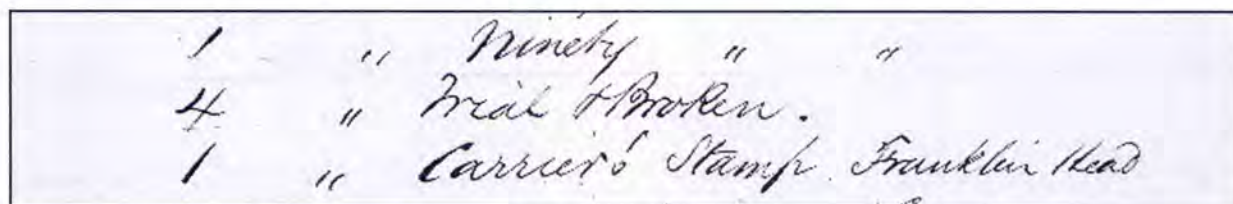 1 " Ninety " "
4 " Trial & Broken.
1 " Carrier's Stamp Franklin Head